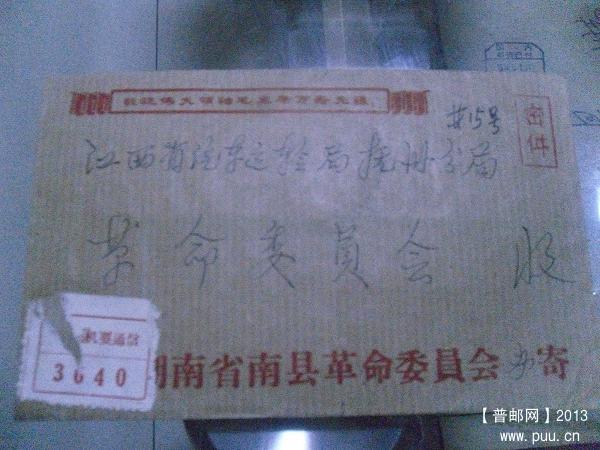 敬祝伟大领袖毛主席万寿无疆
共15号
密件
江西省汽车运输局抚州分局
革命委员会 收
机要通信
3640
湖南省南县革命委員会 办 寄
【普邮网】2013
www.puu.cn